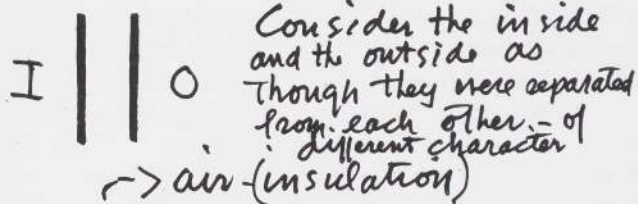 Consider the inside
and the outside as
I O Though they were separated
from each other - of
different character
-> air - (insulation)